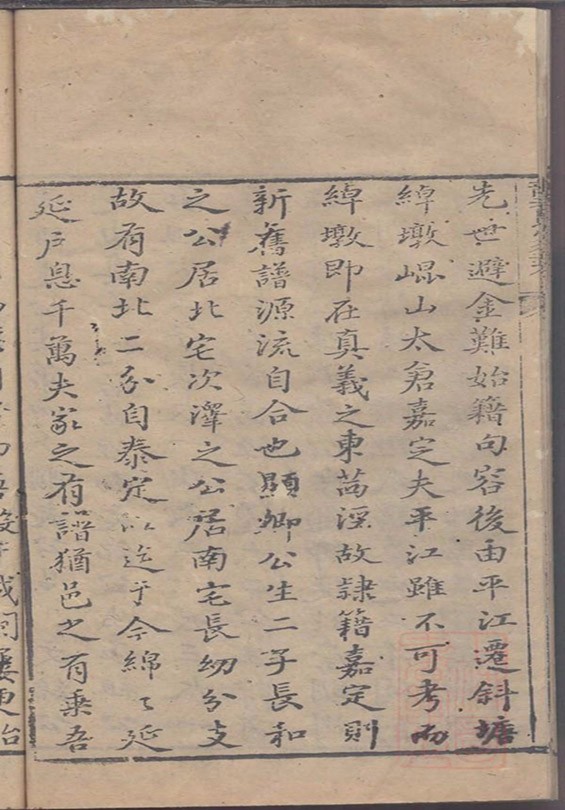 先世避金難始籍句容後由平江遷斜塘
綽墩崐山太倉嘉定夫平江雖不可考而
綽墩即在真義之東茜涇故隷籍嘉定則
新舊譜源流自合也顯卿公生二子長和
之公居北宅次澤之公居南宅長幼分支
故有南北二分自泰定以迄于今綿〻延
延戶息千萬夫家之有譜猶邑之有乗吾